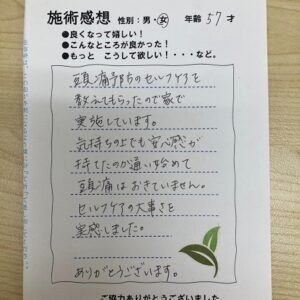 施術感想 性別:男・女 年齢 57 才
●良くなって嬉しい!
●こんなところが良かった!
●もっと こうして欲しい!・・・など。
頭痛予防のセルフケアを
教えてもらったので家で
実施しています。
気持ちの上でも安心感が
持てたのか通い始めて
頭痛はおきていません。
セルフケアの大事さを
実感しました。
ありがとうございます。
ご協力ありがとうございました